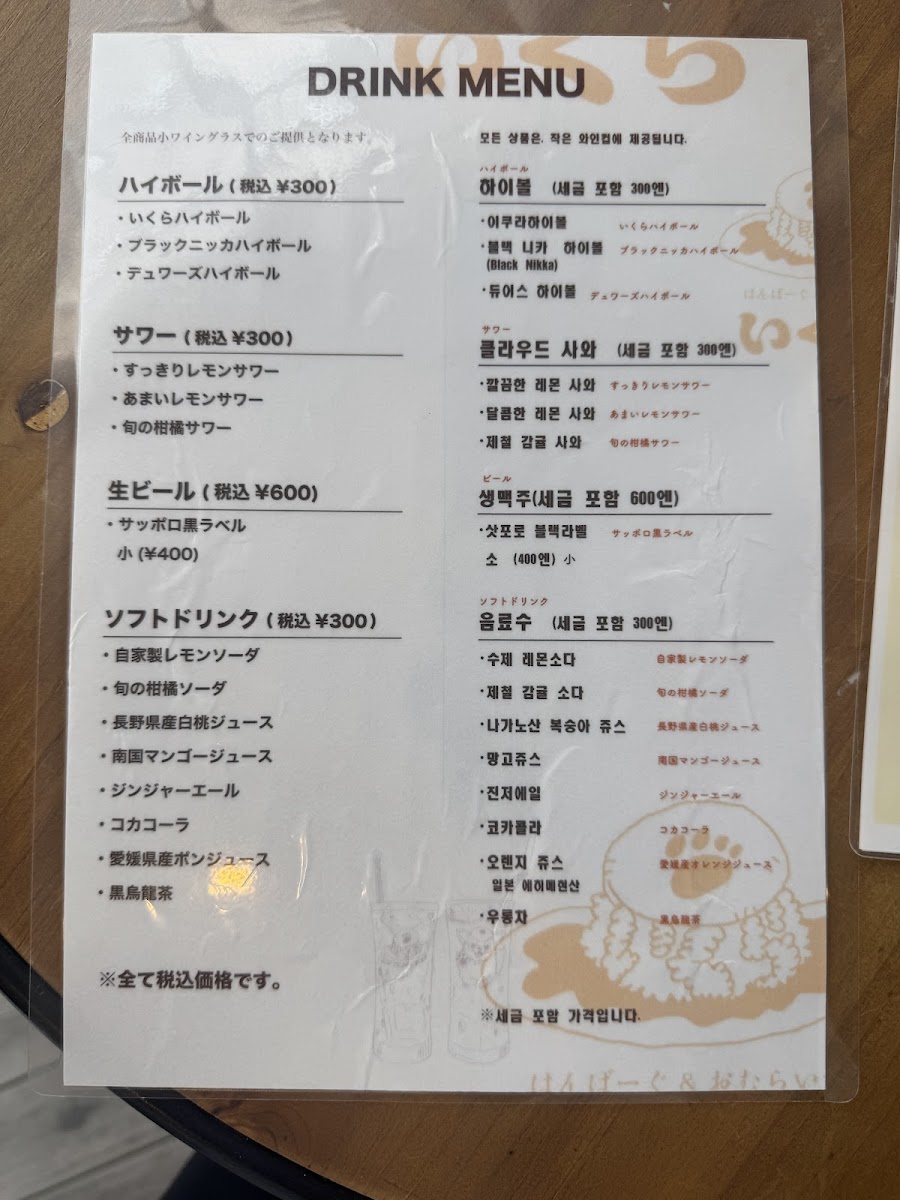 いくら
DRINK MENU
全商品小ワイングラスでのご提供となります。
ハイボール ( 税込 ¥300 )
・いくらハイボール
・ブラックニッカハイボール
・デュワーズハイボール
サワー ( 税込 ¥300 )
・すっきりレモンサワー
・あまいレモンサワー
・旬の柑橘サワー
生ビール ( 税込 ¥600)
・サッポロ黒ラベル
小 (¥400)
ソフトドリンク ( 税込 ¥300 )
・自家製レモンソーダ
・旬の柑橘ソーダ
・長野県産白桃ジュース
・南国マンゴージュース
・ジンジャーエール
・コカコーラ
・愛媛県産ポンジュース
・黒烏龍茶
※全て税込価格です。
모든 상품은, 작은 와인컵에 제공됩니다.
ハイボール
하이볼 (세금 포함 300엔)
·이쿠라하이볼 いくらハイボール
·블랙 니카 하이볼 ブラックニッカハイボール
(Black Nikka)
·듀어스 하이볼 デュワーズハイボール
サワー
클라우드 사와 (세금 포함 300엔)
·깔끔한 레몬 사와 すっきりレモンサワー
·달콤한 레몬 사와 あまいレモンサワー
·제철 감귤 사와 旬の柑橘サワー
ビール
생맥주(세금 포함 600엔)
·삿포로 블랙라벨 サッポロ黒ラベル
소 (400엔) 小
ソフトドリンク
음료수 (세금 포함 300엔)
·수제 레몬소다 自家製レモンソーダ
·제철 감귤 소다 旬の柑橘ソーダ
·나가노산 복숭아 쥬스 長野県産白桃ジュース
·망고쥬스 南国マンゴージュース
·진저에일 ジンジャーエール
·코카콜라 コカコーラ
·오렌지 쥬스 愛媛産オレンジジュース
일본 에히메현산
·우롱차 黒烏龍茶
※세금 포함 가격입니다.
はんばーぐ
いく
はんばーぐ & おむらい